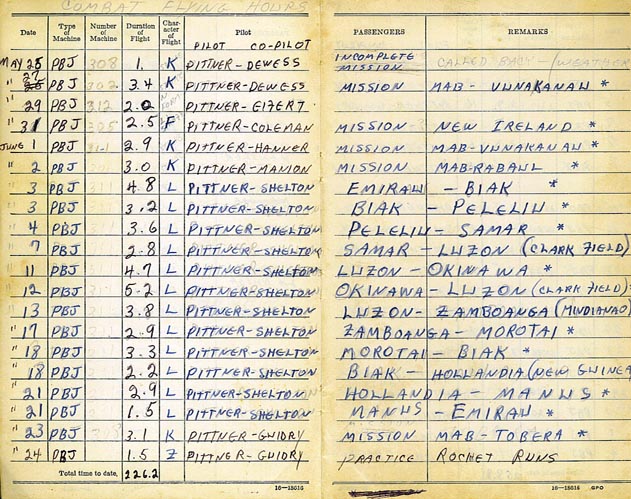 COMBAT FLYING HOURS
Date Type of Machine Number of Machine Duration of Flight Char-acter of Flight Pilot PASSENGERS REMARKS
PILOT CO-PILOT
MAY 25 PBJ 308 1. K PITTNER-DEWESS INCOMPLETE MISSION CALLED BACK - (WEATHER
" 27 PBJ 302 3.4 K PITTNER-DEWESS MISSION MAB- VUNAKANAU *
" 29 PBJ 312 2.0 K PITTNER-EIFERT
" 31 PBJ 305 2.5 F PITTNER-COLEMAN MISSION - NEW IRELAND *
JUNE 1 PBJ 311 2.9 K PITTNER-HANNER MISSION MAB-VUNAKANAU *
" 2 PBJ 3.0 K PITTNER-MANION MISSION MAB-RABAUL *
" 3 PBJ 4.8 L PITTNER-SHELTON EMIRAU - BIAK *
" 3 PBJ 3.2 L PITTNER-SHELTON BIAK - PELELIU *
" 4 PBJ 3.6 L PITTNER-SHELTON PELELIU - SAMAR *
" 7 PBJ 2.8 L PITTNER-SHELTON SAMAR - LUZON (CLARK FIELD)
" 11 PBJ 4.7 L PITTNER-SHELTON LUZON - OKINAWA *
" 12 PBJ 5.2 L PITTNER-SHELTON OKINAWA - LUZON (CLARK FIELD) *
" 13 PBJ 3.8 L PITTNER-SHELTON LUZON - ZAMBOANGA (MINDIANAO)
" 17 PBJ 2.9 L PITTNER-SHELTON ZAMBOANGA - MOROTAI *
" 18 PBJ 3.3 L PITTNER-SHELTON MOROTAI - BIAK *
" 18 PBJ 2.2 L PITTNER-SHELTON BIAK - HOLLANDIA (NEW GUINEA
" 21 PBJ 2.9 L PITTNER-SHELTON HOLLANDIA - MANUS *
" 21 PBJ 1.5 L PITTNER-SHELTON MANUS - EMIRAU *
" 23 PBJ 3.1 K PITTNER-GUIDRY MISSION MAB-TOBERA *
" 24 PBJ 1.5 Z PITTNER-GUIDRY PRACTICE ROCKET RUNS
Total time to date, 226.2
16—15616 16—15616 GPO